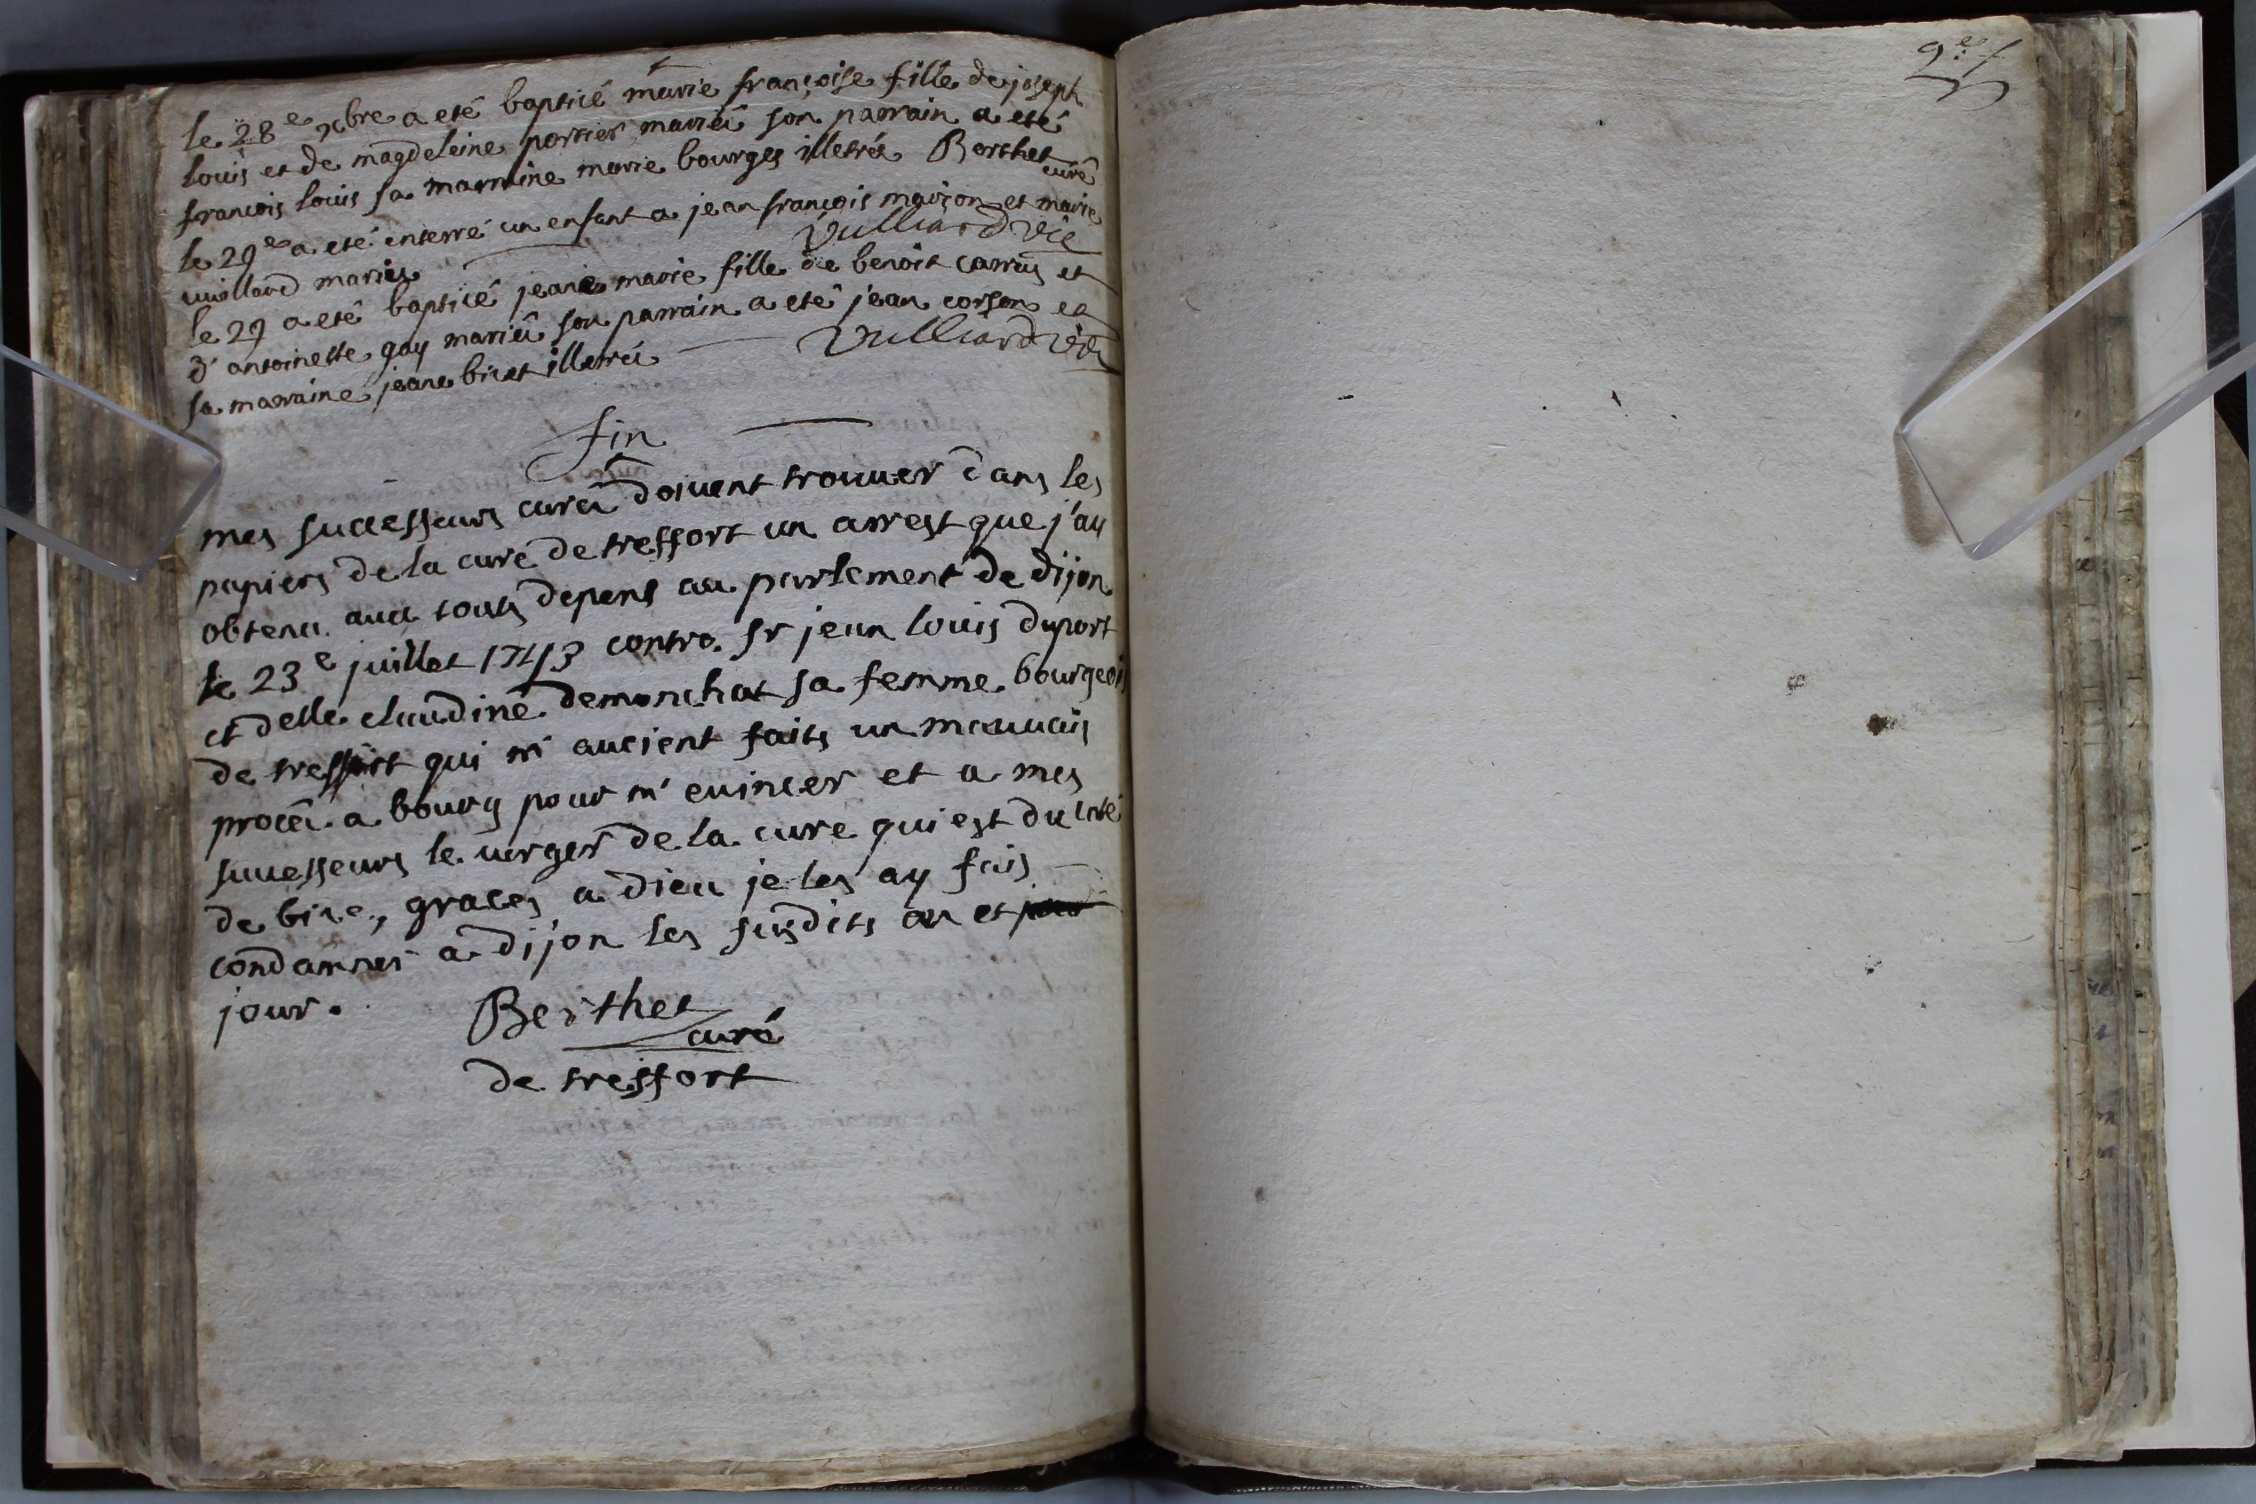 le 28e xbre a eté baptisé marie françoise fille de joseph
louis et de magdeleine perrier mariéś son parrain a eté
francois louis sa marraine marie bourges illetrés Berthet
curé
le 29e a eté enterré un enfant a jean francois maison et marie
vuillard mariés Vulliard vic
le 29 a eté baptisé jeane marie fille de benoit carruz et
d'antoinette gay mariés son parrain a eté jean corson et
sa marraine jeane bivet illetrés Vulliard vic
fin
mes successeurs curés doivent trouver dans les
papiers de la cure de treffort un arrest que j'ay
obtenu avec touts depens au parlement de dijon
le 23e juillet 1743 contre sr jean louis duport
et delle claudine demonchat sa femme bourgeois
de treffort qui m'avoient faits un mauvais
procés a bourg pour m'evincer et a mes
successeurs le verger de la cure qui est du coté
de bise, graces a dieu je les ay fais
condamner a dijon les susdits an et
jour. Berthet
curé
de treffort